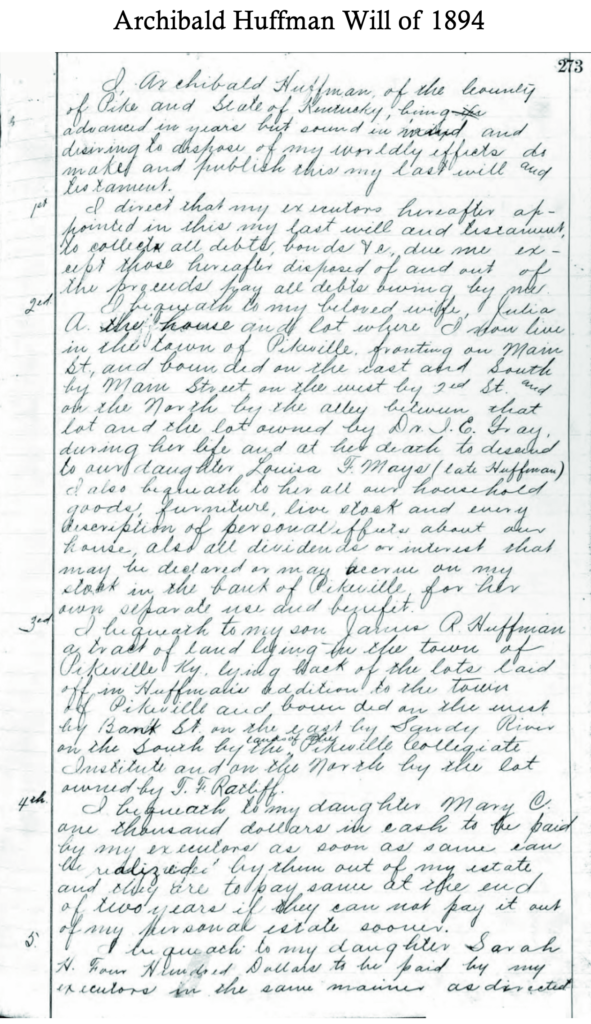 Archibald Huffman Will of 1894
273
I, Archibald Huffman, of the County
of Pike and State of Kentucky, being
advanced in years but sound in mind and
desiring to dispose of my worldly effects do
make and publish this my last will and
testament.
1st
I direct that my executors hereafter ap-
pointed in this my last will and testament,
to collect all debts, bonds &c, due me ex-
cept those hereafter disposed of and out of
the proceeds pay all debts owing by me.
2ed
I bequeath to my beloved wife, Julia
A. the house and lot where I now live
in the town of Pikeville, fronting on Main
St, and bounded on the east and South
by Main Street on the west by 2ed St. and
on the North by the alley between that
lot and the lot owned by Dr. I. E. Gray,
during her life and at her death to descend
to our daughter Louisa F. Mays (late Huffman)
I also bequeath to her all our household
goods, furniture, live stock and every
description of personal effects about our
house, also all dividends or interest that
may be declared or may accrue on my
stock in the bank of Pikeville, for her
own separate use and benefit.
3ed
I bequeath to my son James R. Huffman
a tract of land lying in the town of
Pikeville Ky. lying back of the lots laid
off in Huffman's addition to the town
of Pikeville and bounded on the west
by Bank St. on the east by Sandy River
on the South by the Pikeville Collegiate
Institute and on the North by the lot
owned by T. F. Ratliff.
4th
I bequeath to my daughter Mary C.
one thousand dollars in cash to be paid
by my executors as soon as same can
be realized by them out of my estate
and they are to pay same at the end
of two years if they can not pay it out
of my personal estate sooner.
5
I bequeath to my daughter Sarah
H. Four Hundred Dollars to be paid by my
executors in the same manner as directed